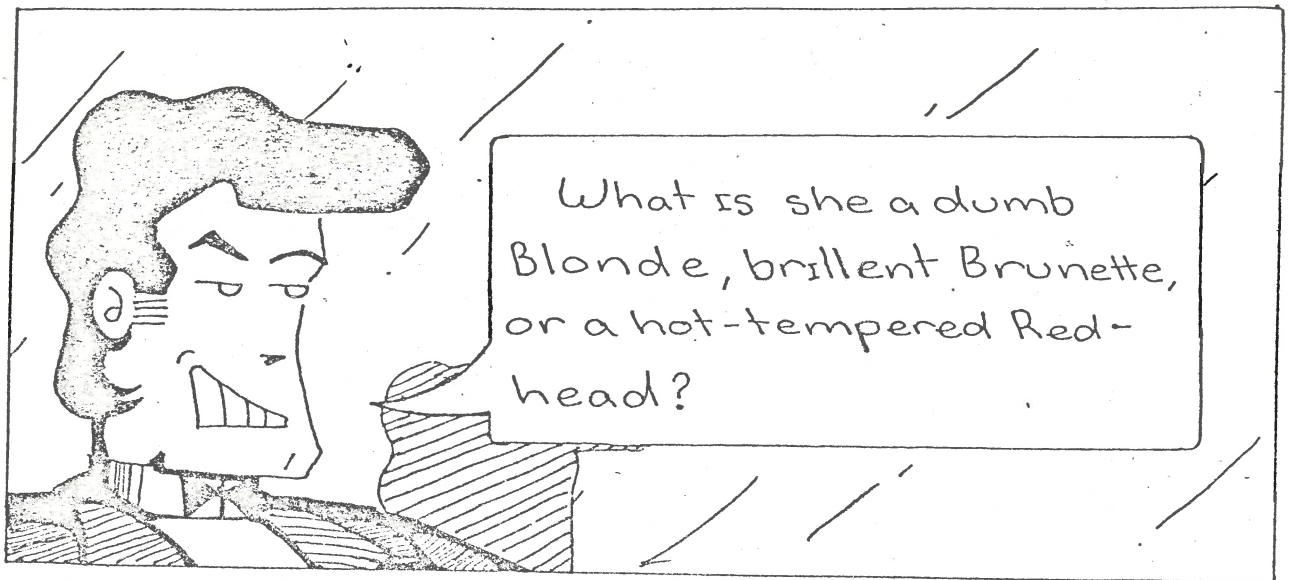 What is she a dumb
Blonde, brillent Brunette,
or a hot-tempered Red-
head?